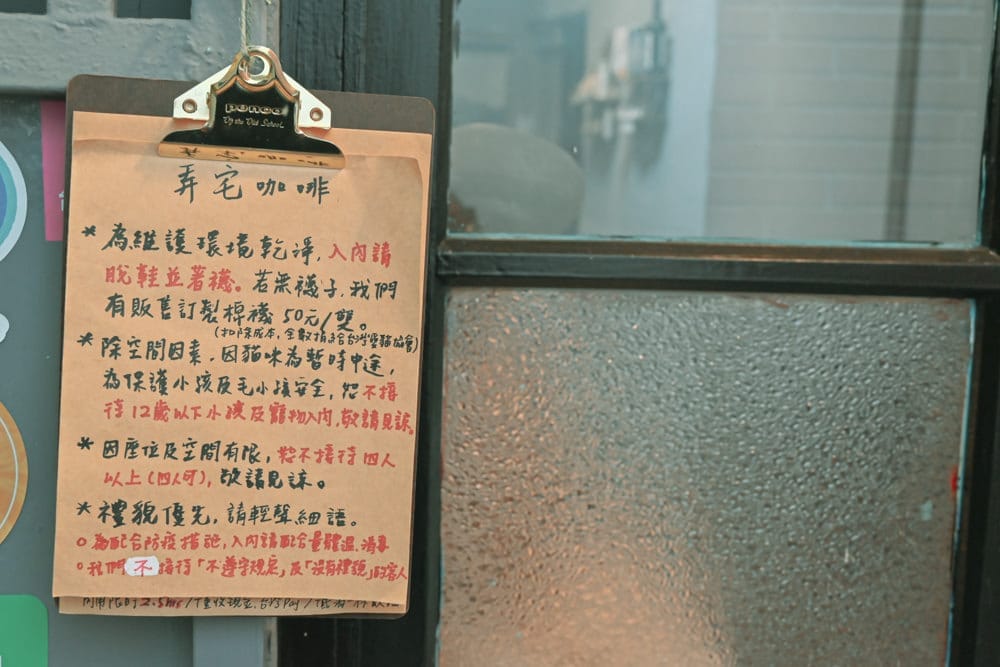 penco
Up the Old School
弄宅咖啡
* 為維護環境乾淨,入內請
脫鞋並著襪。若無襪子,我們
有販售訂製棉襪 50元/雙。
(扣除成本,全數捐給台灣愛貓協會)
* 除空間因素,因貓咪為暫時中途,
為保護小孩及毛小孩安全,恕不接
待12歲以下小孩及寵物入內,敬請見諒。
* 因座位及空間有限,恕不接待四人
以上(四人可),敬請見諒。
* 禮貌優先,請輕聲細語。
○為配合防疫措施,入內請配合量體溫、消毒
○我們不接待「不遵守規定」及「沒有禮貌」的客人
2.5hrs/僅收現金、台灣Pay/低消